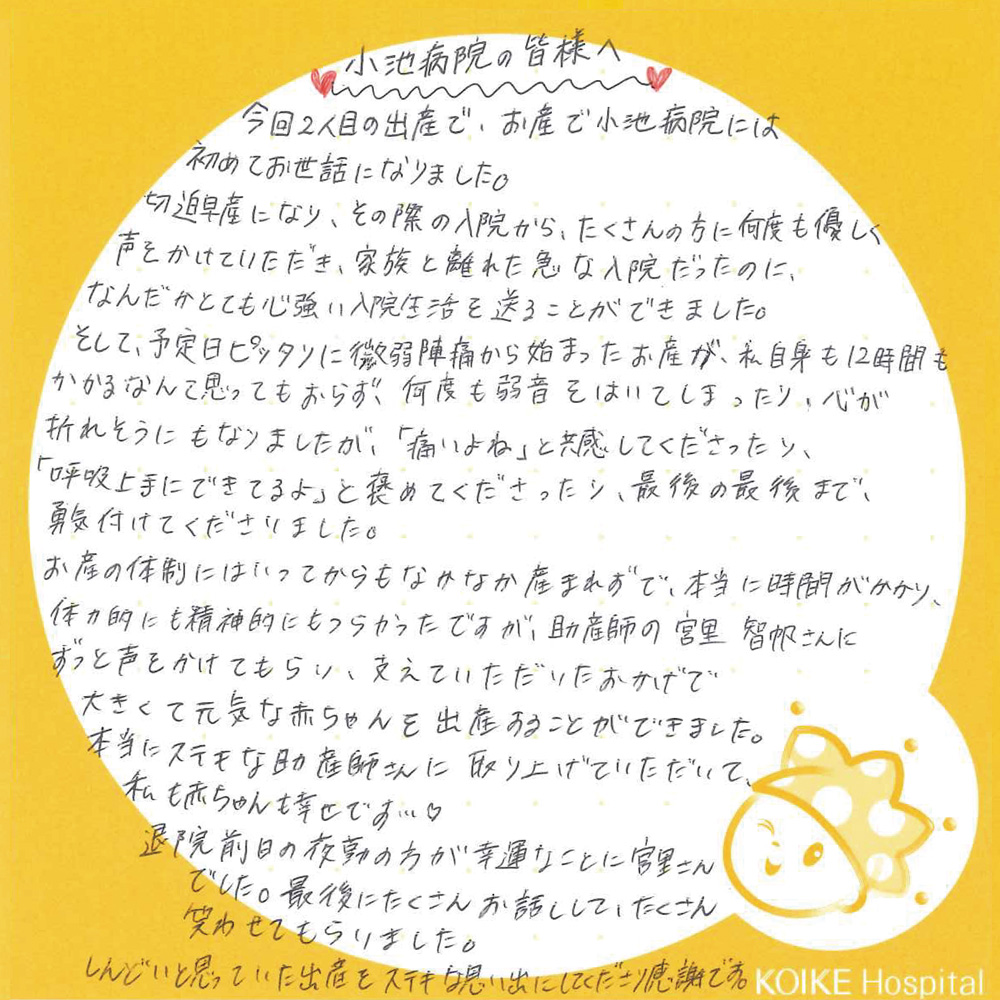 小池病院の皆様へ
今回2人目の出産で、お産で小池病院には
初めてお世話になりました。
切迫早産になり、その際の入院から、たくさんの方に何度も優しく
声をかけていただき、家族と離れた急な入院だったのに、
なんだかとても心強い入院生活を送ることができました。
そして、予定日ピッタリに微弱陣痛から始まったお産が、私自身も12時間も
かかるなんて思ってもおらず、何度も弱音をはいてしまったり、心が
折れそうにもなりましたが、「痛いよね」と共感してくださったり、
「呼吸上手にできてるよ」と褒めてくださったり、最後の最後まで、
勇気付けてくださりました。
お産の体制にはいってからもなかなか産まれずで、本当に時間がかかり、
体力的にも精神的にもつらかったですが、助産師の宮里 智帆さんに
ずっと声をかけてもらい、支えていただいたおかげで
大きくて元気な赤ちゃんを出産することができました。
本当にステキな助産師さんに取り上げていただいて、
私も赤ちゃんも幸せです…♡
退院前日の夜勤の方が幸運なことに宮里さん
でした。最後にたくさんお話しして、たくさん
笑わせてもらいました。
しんどいと思っていた出産をステキな思い出にしてくださり感謝です。
KOIKE Hospital